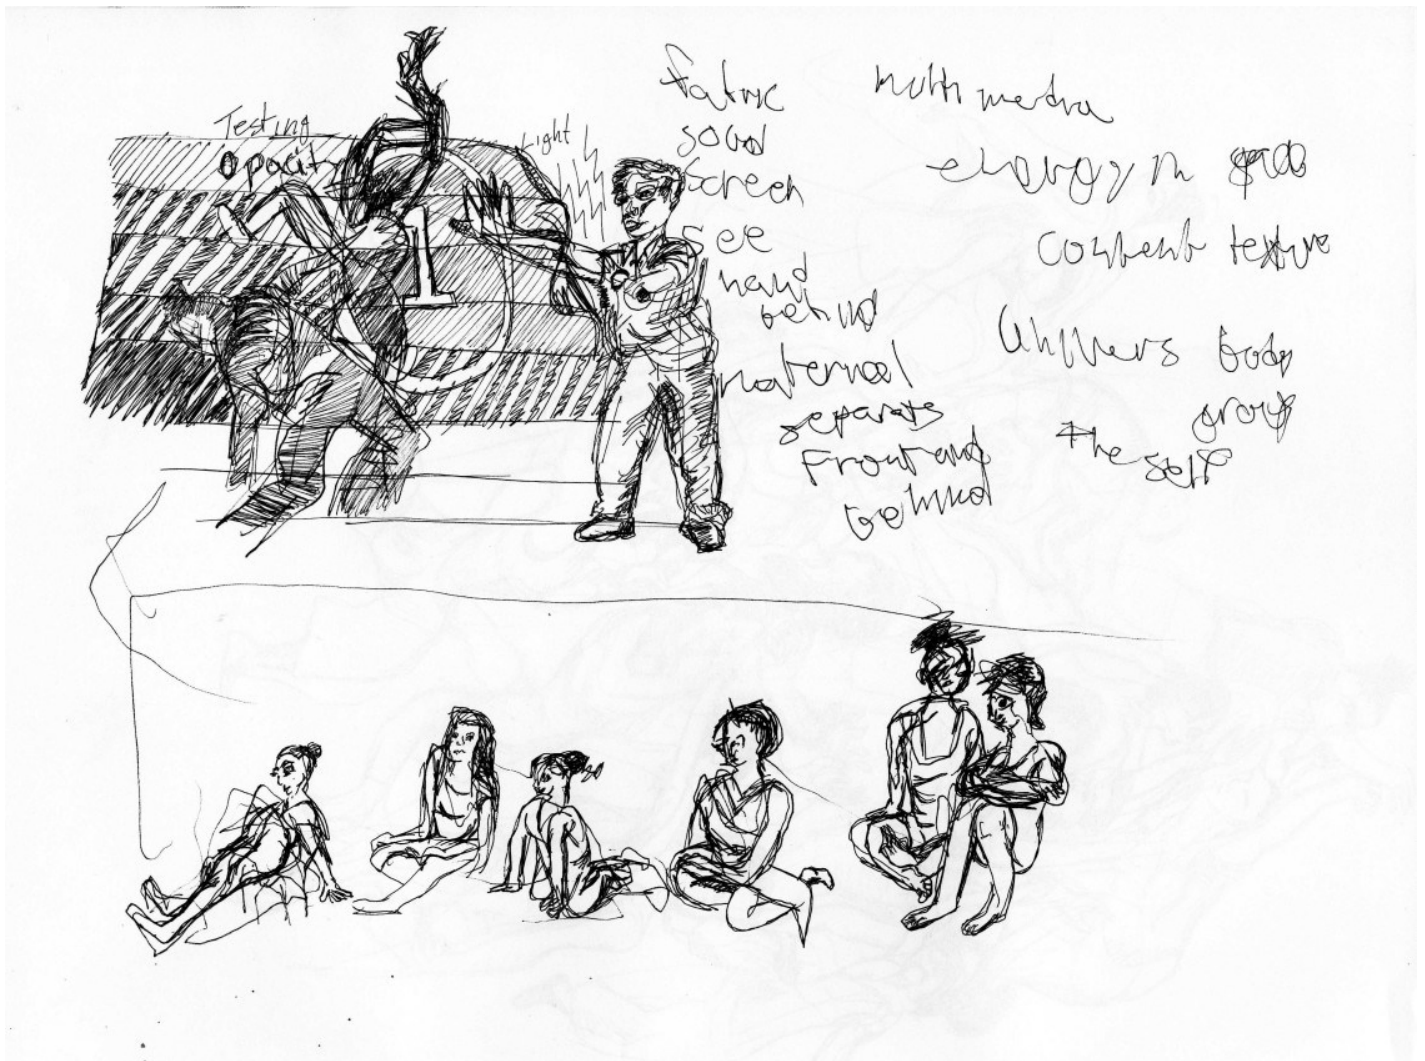 Testing
Opacity
Light
1
fabric
solid
screen
see
hand
behind
material
separate
Front and
behind
multi media
energy in
content texture
body
group
the self